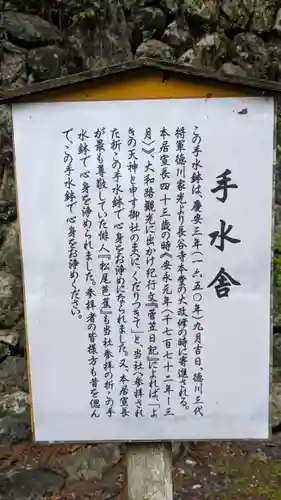 手水舎
この手水鉢は、慶安三年（一六五〇）年九月吉日、徳川三代
将軍徳川家光より長谷寺本堂の大改修の時に寄進された。
本居宣長四十三歳の時《安永元年（千七百七十二年）三
月》》大和路観光に出かけ紀行文『菅笠日記』によれば、「よ
きの天神と申す御社のまへに、くだりつきて」と、当社へ参拝され
た折この手水鉢で心身をお浄めになられました。又、本居宣長
が最も尊敬していた俳人『松尾芭蕉』も当社参拝の折、この手
水鉢で心身を浄められました。参拝者の皆様方も昔を偲ん
で、この手水鉢で心身をお浄めください。